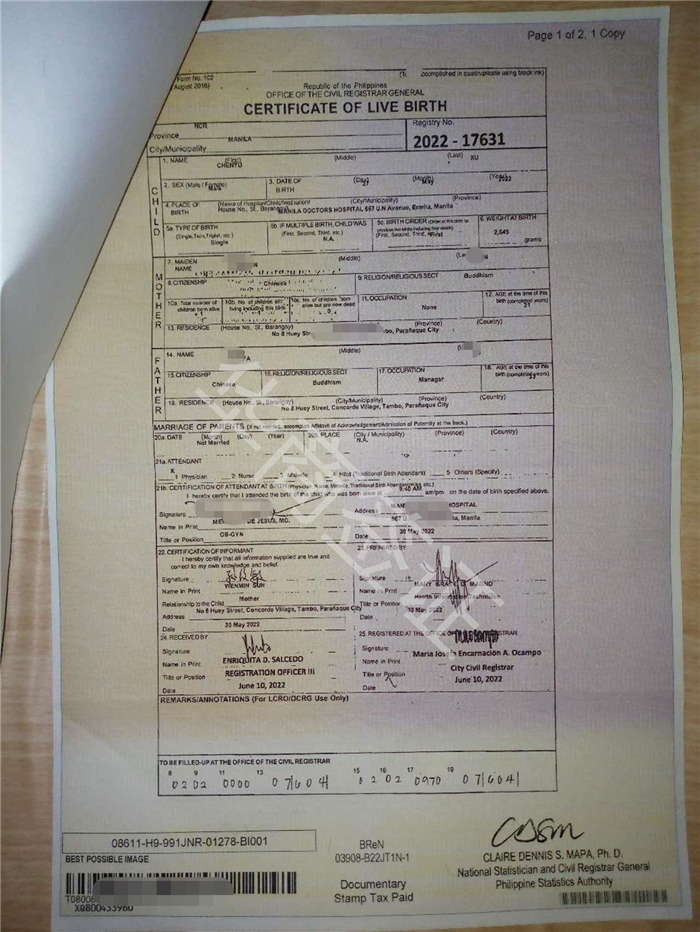 Page 1 of 2, 1 Copy
Form No. 102
August 2016)
(To be accomplished in quadruplicate using black ink)
Republic of the Philippines
OFFICE OF THE CIVIL REGISTRAR GENERAL
CERTIFICATE OF LIVE BIRTH
Province NCR
City/Municipality MANILA
Registry No.
2022 - 17631
CHILD
1. NAME (First) (Middle) (Last)
CHENYU XU
2. SEX (Male / Female) Male
3. DATE OF BIRTH (Day) (Month) May (Year) 2022
4. PLACE OF BIRTH (Name of Hospital/Clinic/Institution/ House No., St., Barangay) (City/Municipality) (Province)
MANILA DOCTORS HOSPITAL 667 U.N Avenue, Ermita, Manila
5a. TYPE OF BIRTH (Single, Twin, Triplet, etc.)
Single
5b. IF MULTIPLE BIRTH, CHILD WAS (First, Second, Third, etc.)
N.A.
5c. BIRTH ORDER
6. WEIGHT AT BIRTH
2,645 grams
MOTHER
7. MAIDEN NAME (Middle)
8. CITIZENSHIP Chinese
9. RELIGION/RELIGIOUS SECT Buddhism
10a. Total number of children born alive
10b. No. of children still living including this birth
10c. No. of children born alive but are now dead
11. OCCUPATION
None
12. AGE at the time of this birth (completed years)
31
13. RESIDENCE (House No., St., Barangay) (Province) (Country)
No 8 Huey Str bo, Parañaque City
FATHER
14. NAME (Middle)
15. CITIZENSHIP
Chinese
16. RELIGION/RELIGIOUS SECT
Buddhism
17. OCCUPATION
Manager
18. AGE at the time of this birth (completed years)
19. RESIDENCE (House No., St., Barangay) (City/Municipality) (Province) (Country)
No 8 Huey Street, Concorde Village, Tambo, Parañaque City
MARRIAGE OF PARENTS (If not married, accomplish Affidavit of Acknowledgement/Admission of Paternity at the back.)
20a. DATE (Month) (Day) (Year)
Not Married
20b. PLACE (City / Municipality) (Province) (Country)
N.A.
21a. ATTENDANT
X
1 Physician 2 Nurse 3 Midwife 4 Hilot (Traditional Birth Attendant) 5 Others (Specify)
21b. CERTIFICATION OF ATTENDANT AT BIRTH (Physician, Nurse, Midwife, Traditional Birth Attendant/Hilot, etc.)
I hereby certify that I attended the birth of the child who was born alive at 9:40 AM am/pm on the date of birth specified above.
Signature
Address MANI HOSPITAL
667 U. la, Manila
Name in Print DE JESUS, MD.
Title or Position OB-GYN
Date 30 May 2022
22. CERTIFICATION OF INFORMANT
I hereby certify that all information supplied are true and correct to my own knowledge and belief.
Signature
Name in Print WENMIN SUN
Relationship to the Child Mother
Address No 8 Huey Street, Concorde Village, Tambo, Parañaque City
Date 30 May 2022
23. PREPARED BY
Signature
Name in Print MARY GRACE MAGNO
Title or Position Health Information Technician
Date 30 May 2022
24. RECEIVED BY
Signature
Name in Print ENRIQUITA D. SALCEDO
Title or Position REGISTRATION OFFICER III
Date June 10, 2022
25. REGISTERED AT THE OFFICE OF THE CIVIL REGISTRAR
Signature
Name in Print Maria Josefa Encarnacion A. Ocampo
Title or Position City Civil Registrar
Date June 10, 2022
REMARKS/ANNOTATIONS (For LCRO/OCRG Use Only)
TO BE FILLED-UP AT THE OFFICE OF THE CIVIL REGISTRAR
8 9 11 13 15 16 17 19
0202 0000 07604 0202 0970 07604
08611-H9-991JNR-01278-BI001
BEST POSSIBLE IMAGE
XQ800433960
BReN
03908-B22JT1N-1
Documentary
Stamp Tax Paid
CLAIRE DENNIS S. MAPA, Ph. D.
National Statistician and Civil Registrar General
Philippine Statistics Authority